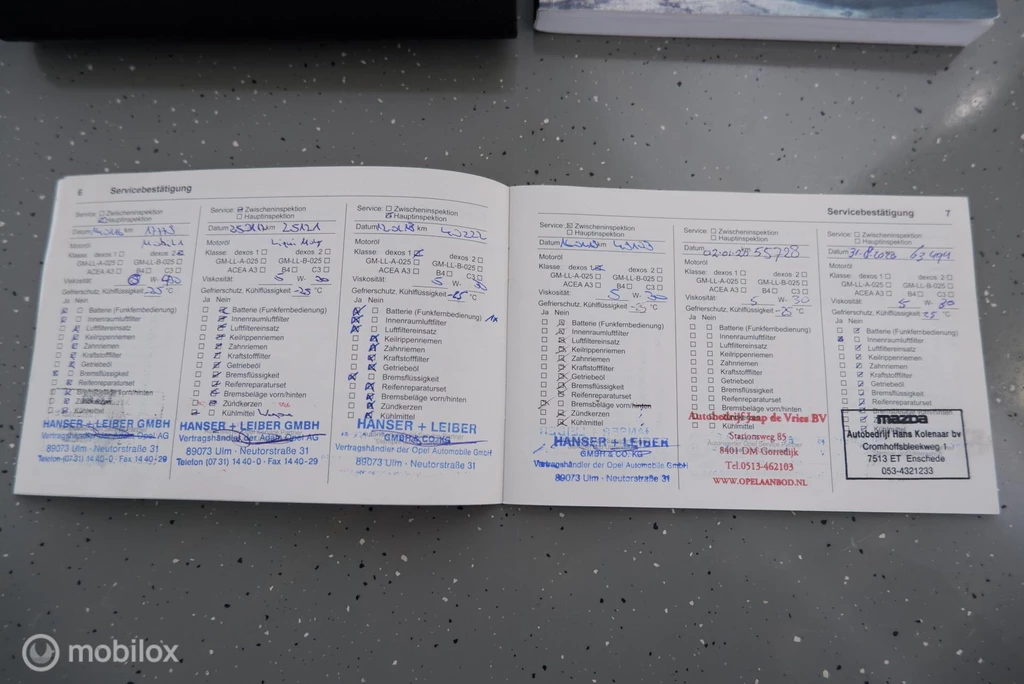 6 Servicebestätigung
Service: Zwischeninspektion
Hauptinspektion
Datum km 17773
Motoröl
Klasse: dexos 1 dexos 2
GM-LL-A-025 GM-LL-B-025
ACEA A3 B4 C3
Viskosität W-
Gefrierschutz, Kühlflüssigkeit -25 °C
Ja Nein
Batterie (Funkfernbedienung)
Innenraumluftfilter
Luftfiltereinsatz
Keilrippenriemen
Zahnriemen
Kraftstofffilter
Getriebeöl
Bremsflüssigkeit
Reifenreparaturset
Bremsbeläge vorn/hinten
Zündkerzen
Kühlmittel
HANSER + LEIBER GMBH
Vertragshändler der Adam Opel AG
89073 Ulm - Neutorstraße 31
Telefon (07 31) 14 40-0 - Fax 14 40-29
Service: Zwischeninspektion
Hauptinspektion
Datum km 25121
Motoröl Liqui Moly
Klasse: dexos 1 dexos 2
GM-LL-A-025 GM-LL-B-025
ACEA A3 B4 C3
Viskosität 5 W- 30
Gefrierschutz, Kühlflüssigkeit -25 °C
Ja Nein
Batterie (Funkfernbedienung)
Innenraumluftfilter
Luftfiltereinsatz
Keilrippenriemen
Zahnriemen
Kraftstofffilter
Getriebeöl
Bremsflüssigkeit
Reifenreparaturset
Bremsbeläge vorn/hinten
Zündkerzen
Kühlmittel
HANSER + LEIBER GMBH
Vertragshändler der Adam Opel AG
89073 Ulm - Neutorstraße 31
Telefon (07 31) 14 40-0 - Fax 14 40-29
Service: Zwischeninspektion
Hauptinspektion
Datum km
Motoröl
Klasse: dexos 1 dexos 2
GM-LL-A-025 GM-LL-B-025
ACEA A3 B4 C3
Viskosität 5 W- 30
Gefrierschutz, Kühlflüssigkeit -25 °C
Ja Nein
Batterie (Funkfernbedienung) 1x
Innenraumluftfilter
Luftfiltereinsatz
Keilrippenriemen
Zahnriemen
Kraftstofffilter
Getriebeöl
Bremsflüssigkeit
Reifenreparaturset
Bremsbeläge vorn/hinten
Zündkerzen
Kühlmittel
HANSER + LEIBER
GMBH & CO. KG
Vertragshändler der Opel Automobile GmbH
89073 Ulm - Neutorstraße 31
Servicebestätigung 7
Service: Zwischeninspektion
Hauptinspektion
Datum km
Motoröl
Klasse: dexos 2
GM-LL-A-025 GM-LL-B-025
ACEA A3 B4 C3
Viskosität: 5 W- 30
Gefrierschutz, Kühlflüssigkeit °C
Ja Nein
Batterie (Funkfernbedienung)
Innenraumluftfilter
Luftfiltereinsatz
Keilrippenriemen
Zahnriemen
Kraftstofffilter
Getriebeöl
Bremsflüssigkeit
Reifenreparaturset
Bremsbeläge vorn/hinten
Zündkerzen
Kühlmittel
HANSER + LEIBER
GMBH & CO. KG
Vertragshändler der Opel Automobile GmbH
89073 Ulm - Neutorstraße 31
Service: Zwischeninspektion
Hauptinspektion
Datum 55728
Motoröl
Klasse: dexos 1 dexos 2
GM-LL-A-025 GM-LL-B-025
ACEA A3 B4 C3
Viskosität: 5 W- 30
Gefrierschutz, Kühlflüssigkeit -25 °C
Ja Nein
Batterie (Funkfernbedienung)
Innenraumluftfilter
Luftfiltereinsatz
Keilrippenriemen
Zahnriemen
Kraftstofffilter
Getriebeöl
Bremsflüssigkeit
Reifenreparaturset
Bremsbeläge vorn/hinten
Autobedrijf Jaap de Vries BV
Stationsweg 85
8401 DM Gorredijk
Tel.0513-462103
WWW.OPELAANBOD.NL
Service: Zwischeninspektion
Hauptinspektion
Datum
Motoröl
Klasse: dexos 1 dexos 2
GM-LL-A-025 GM-LL-B-025
ACEA A3 B4 C3
Viskosität: 5 W- 30
Gefrierschutz, Kühlflüssigkeit 25 °C
Ja Nein
Batterie (Funkfernbedienung)
Innenraumluftfilter
Luftfiltereinsatz
Keilrippenriemen
Zahnriemen
Kraftstofffilter
Getriebeöl
Bremsflüssigkeit
Reifenreparaturset
mazda
Autobedrijf Hans Kolenaar bv
Cromhoffsbleekweg 1
7513 ET Enschede
053-4321233
mobilox